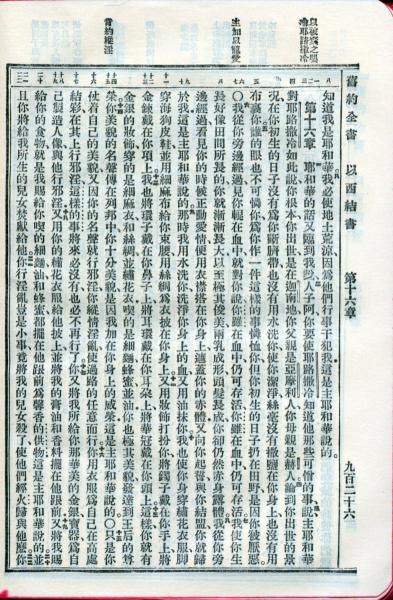 舊約全書　以西結書　第十六章　九百二十六
以被棄之嬰
喻耶路撒冷
主加以寵愛
背約縱淫
知道我是耶和華我必使地土荒涼因為他們行事干犯我這是主耶和華說的
第十六章　耶和華的話又臨到我說人子阿你要使耶路撒冷知道他那些可憎的事說主耶和華
對耶路撒冷如此說你根本你出世是在迦南地你父親是亞摩利人你母親是赫人論到你出世的景
況在你初生的日子沒有為你斷臍帶也沒有用水洗你使你潔淨絲毫沒有撒鹽在你身上也沒有用
布裹你誰的眼也不可憐你為你作一件這樣的事憐恤你但你初生的日子扔在田野是因你被厭惡
〇我從你旁邊經過見你輥在血中就對你說你雖在血中仍可存活你雖在血中仍可存活我使你生
長好像田間所長的你就漸漸長大以至極其俊美兩乳成形頭髮長成你卻仍然赤身露體我從你旁
邊經過看見你的時候正動愛情便用衣襟搭在你身上遮蓋你的赤體又向你起誓與你結盟你就歸
於我這是主耶和華說的那時我用水洗你洗淨你身上的血又用油抹你我也使你身穿繡花衣服腳
穿海狗皮鞋並用細麻布給你束腰用絲綢為衣披在你身上又用妝飾打扮你將鐲子戴在你手上將
金鍊戴在你項上我也將環子戴在你鼻子上將耳環戴在你耳朵上將華冠戴在你頭上這樣你就有
金銀的妝飾穿的是細麻衣和絲綢並繡花衣喫的是細麵蜂蜜並油你也極其美貌發達到王后的尊
榮你美貌的名聲傳在列邦中你十分美貌是因我加在你身上的威榮這是主耶和華說的〇只是你
仗着自己的美貌又因你的名聲就行邪淫你縱情淫亂使過路的任意而行你用衣服為自己在高處
結彩在其上行邪淫這樣的事將來必沒有也必不再行了你又將我所給你那華美的金銀寶器為自
己製造人像與他行邪淫又用你的繡花衣服給他披上並將我的膏油和香料擺在他跟前又將我賜
給你的食物就是我賜給你喫的細麵油和蜂蜜都擺在他跟前為馨香的供物這是主耶和華說的並
且你將給我所生的兒女焚獻給他你行淫亂豈是小事竟將我的兒女殺了使他們經火歸與他麼你